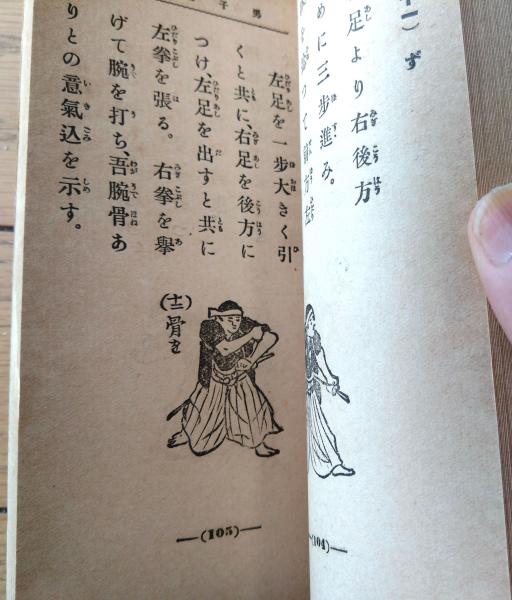 十一) ず
足より右後方
めに三歩進み。
(104)—
男子
左足を一歩大きく引
くと共に、右足を後方に
つけ、左足を出すと共に
左拳を張る。 右拳を擧
げて腕を打ち、吾腕骨あ
りとの意氣込を示す。
(十二)骨を
—(105)—